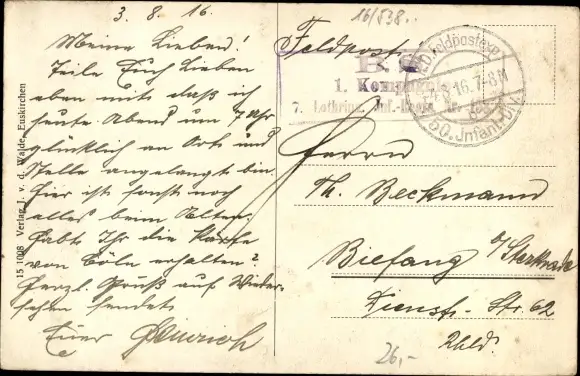 3. 8. 16.
Meine Lieben!
Teile Euch Lieben
eben mit daß ich
heute Abend um 7 Uhr
glücklich an Ort und
Stelle angelangt bin.
Hier ist sonst noch
alles beim Alten.
Habt Ihr die Karte
von Cöln erhalten?
Herzl. Gruß auf Wieder-
sehen sendet
Euer Heinrich
15 1008 Verlag J. v. d. Walde, Euskirchen
16/538.
Feldpost.
1. Kompagnie
7. Lothring. Inf.-Regt. Nr. 158
Feldpostexp.
8.16. 7-8N
50. Infant. Div.
Herrn
Th. Beckmann
Biefang a/Sterkrade
Dienst-Str. 62
Rhld.
26,-